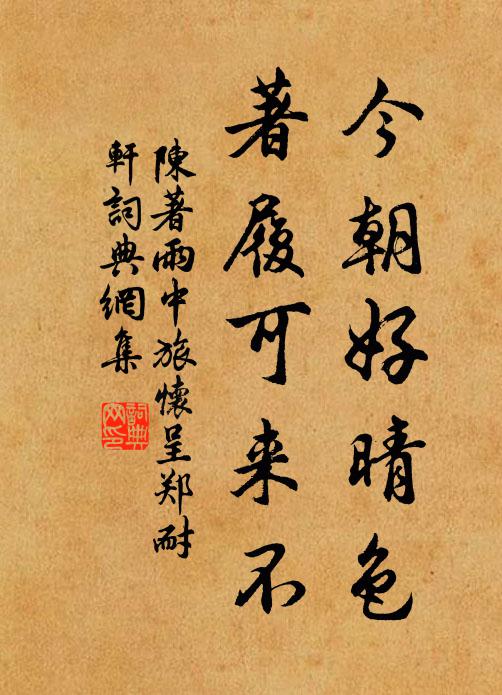 今朝好晴色
著履可来不
陳著雨中旅懷呈郑耐
軒詞典網集
詞典
网印